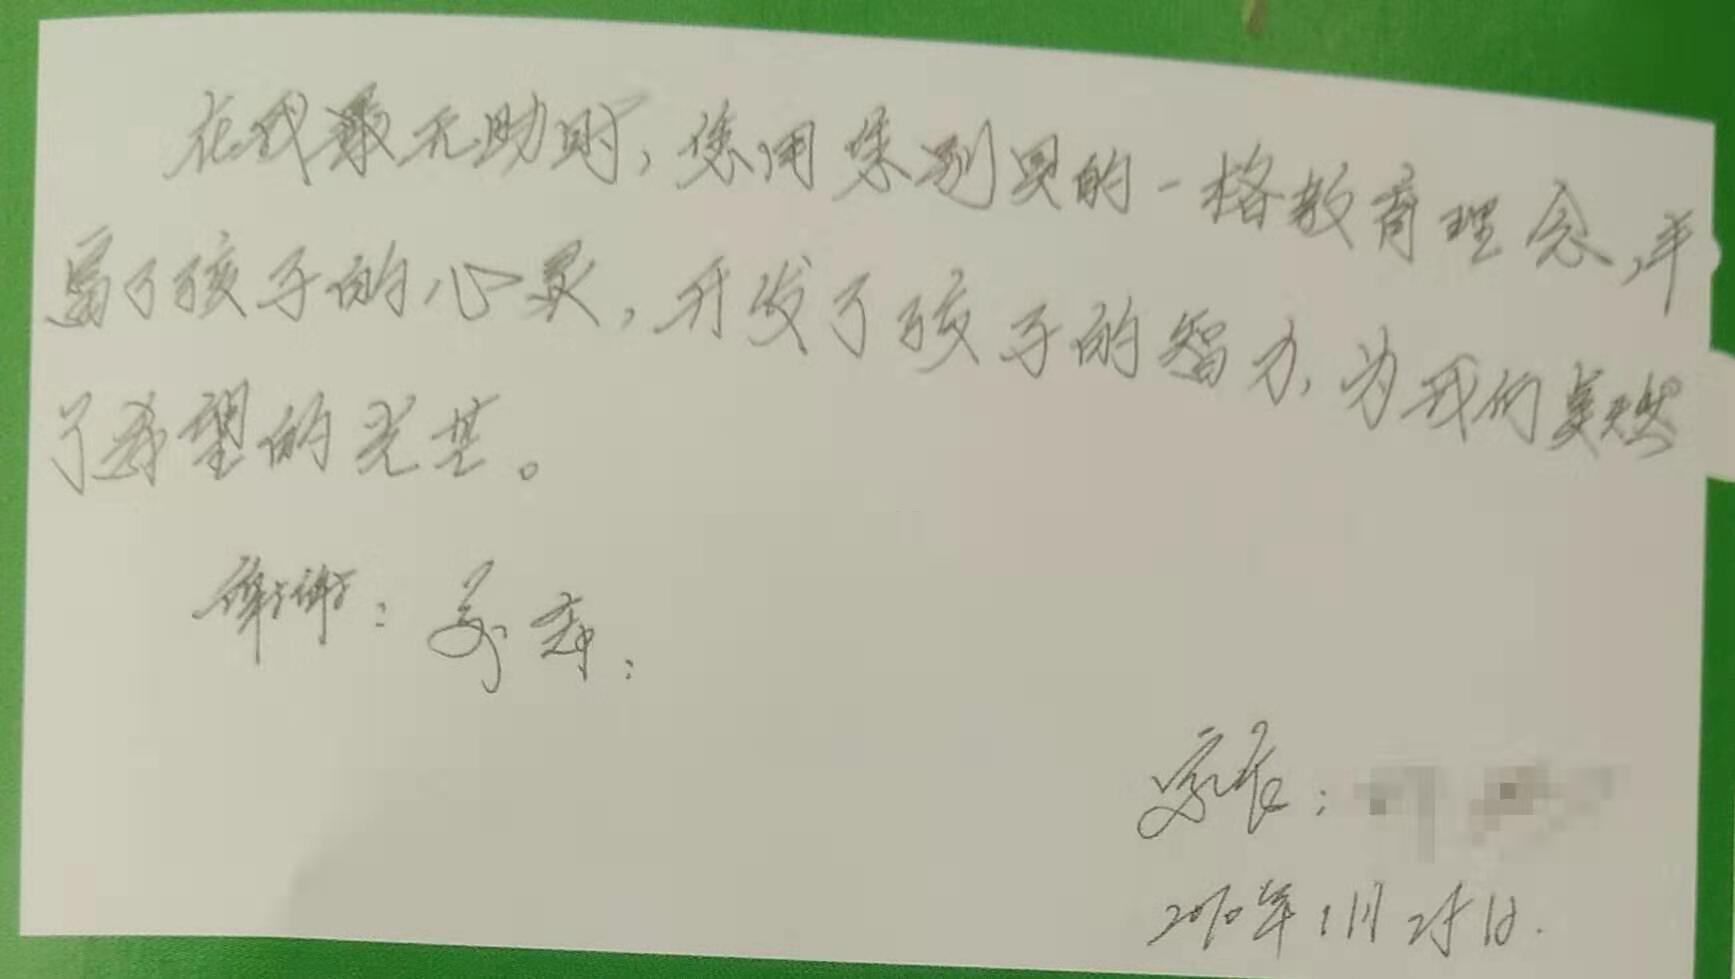 在我最无助时，您用特别的一格教育理念，丰
富了孩子的心灵，开发了孩子的智力，为我们点燃
了希望的光芒。
谢谢：
家长：
2020年1月25日.